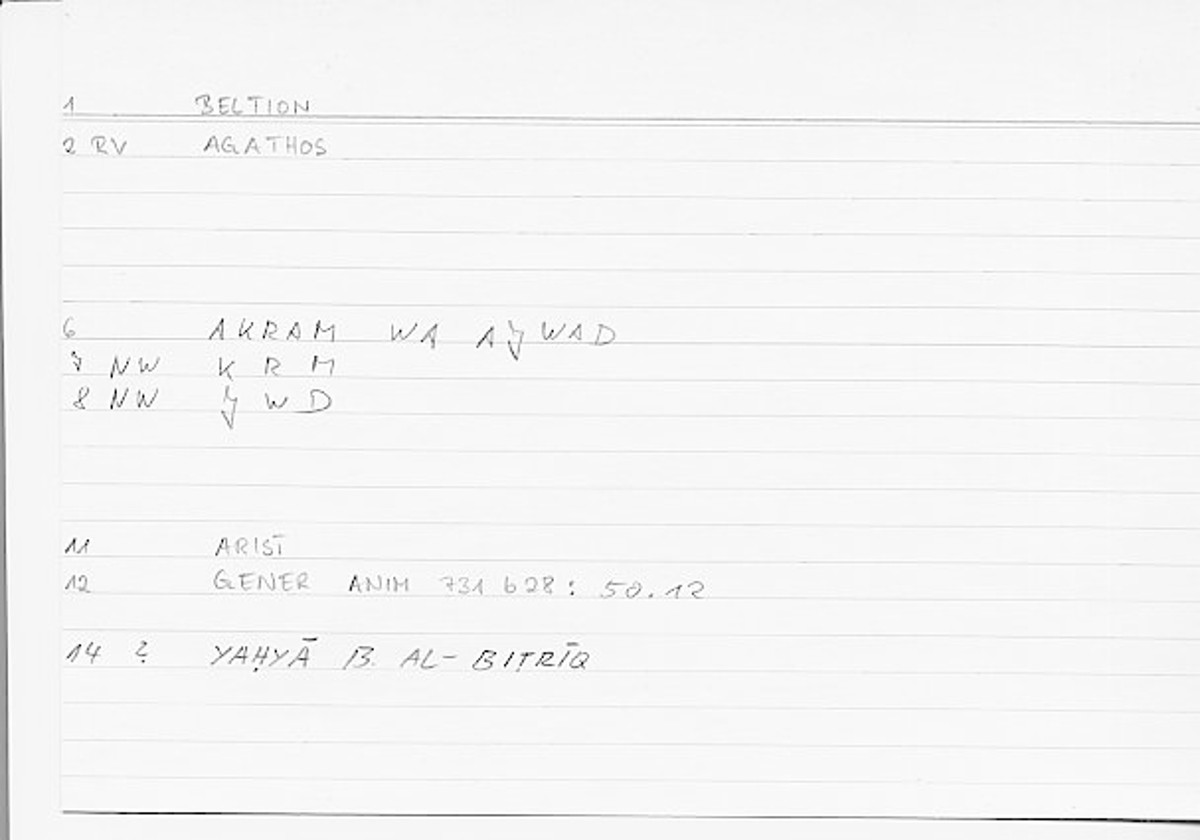 1 BELTION
2 RV AGATHOS
6 AKRAM WA AǦWAD
7 NW K R M
8 NW Ǧ W D
11 ARIST
12 GENER ANIM 731 b 28: 50.12
14 ? YAḤYĀ B. AL-BIṬRĪQ